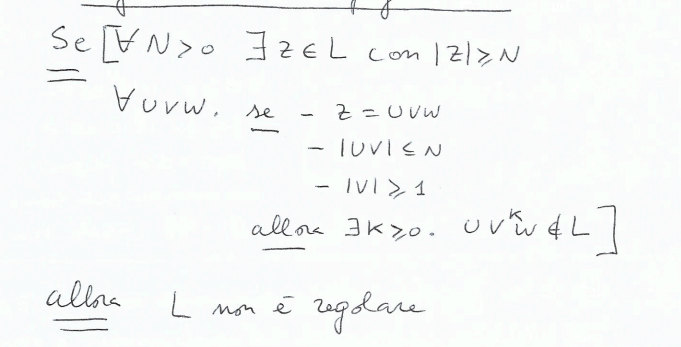 Se [∀N>0 ∃z∈L con |z|≥N
∀uvw. se - z=uvw
- |uv|≤N
- |v|≥1
allora ∃k≥0. uv^k w∉L]
allora L non è regolare